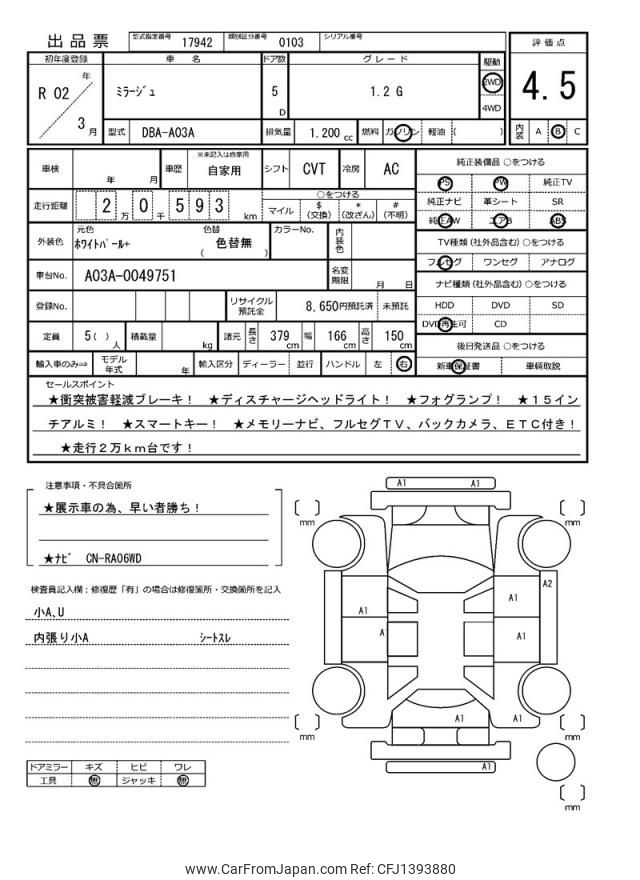 出品票 型式指定番号 17942 類別区分番号 0103 シリアル番号
初年度登録 車名 ドア数 グレード 駆動 評価点
R 02 年 3 月 ﾐﾗｰｼﾞｭ 5 D 1.2 G 2WD 4WD 4.5
型式 DBA-A03A 排気量 1.200 cc 燃料 ガソリン 軽油 ( ) 内装 A B C
車検 年 月 車歴 ※未記入は自家用 自家用 シフト CVT 冷房 AC
走行距離 2 万 0 千 5 9 3 km
○をつける
マイル $ (交換) * (改ざん) # (不明)
外装色 元色 ﾎﾜｲﾄﾊﾟｰﾙ+ 色替 ( 色替無 ) カラーNo. 内装色
車台No. A03A-0049751 名変期限 月 日
登録No. リサイクル預託金 8,650円預託済 未預託
定員 5 ( ) 人 積載量 kg 諸元 長さ 379 cm 幅 166 cm 高さ 150 cm
輸入車のみ⇒ モデル年式 年 輸入区分 ディーラー 並行 ハンドル 左 右
純正装備品 ○をつける
PS PW 純正TV
純正ナビ 革シート SR
純正AW エアB ABS
TV種類 (社外品含む) ○をつける
フルセグ ワンセグ アナログ
ナビ種類 (社外品含む) ○をつける
HDD DVD SD
DVD再生可 CD
後日発送品 ○をつける
新車保証書 車輌取説
セールスポイント
★衝突被害軽減ブレーキ! ★ディスチャージヘッドライト! ★フォグランプ! ★15イン
チアルミ! ★スマートキー! ★メモリーナビ、フルセグTV、バックカメラ、ETC付き!
★走行2万km台です!
注意事項・不具合箇所
★展示車の為、早い者勝ち!
★ﾅﾋﾞ CN-RA06WD
検査員記入欄:修復歴「有」の場合は修復箇所・交換箇所を記入
小A､U
内張り小A ｼｰﾄｽﾚ
ドアミラー キズ ヒビ ワレ
工具 無 ジャッキ 無
A1 A1
mm mm
A2
A1 A1
A1 A1
A1 A1
mm mm
A1
mm
www.CarFromJapan.com Ref: CFJ1393880